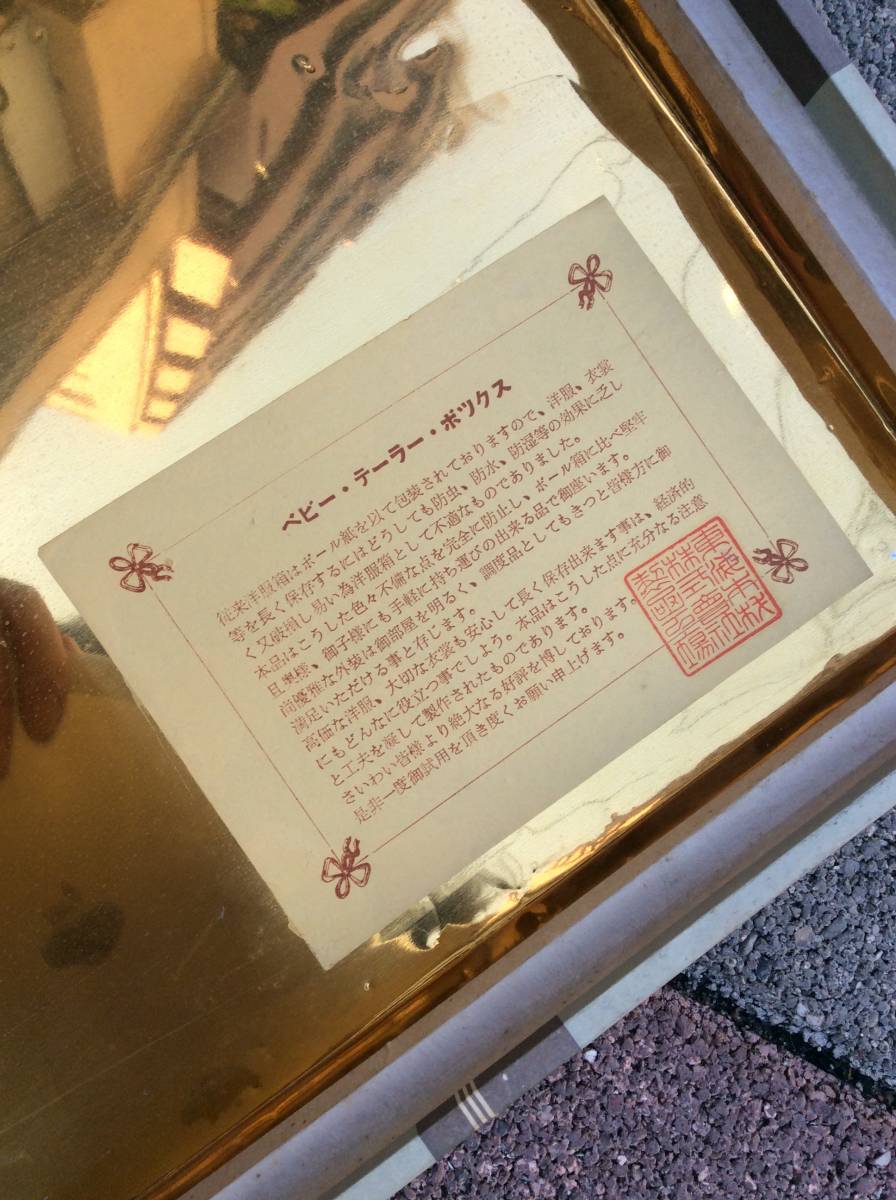 ベビー・テーラー・ボックス
従来洋服箱はボール紙を以て包装されておりますので、洋服、衣裳
等を長く保存するにはどうしても防虫、防水、防湿等の効果に乏し
く又破損し易い為洋服箱として不適なものでありました。
本品はこうした色々不備な点を完全に防止し、ボール箱に比べ堅牢
且奥様、御子様にも手軽に持ち運びの出来る品で御座います。
尚優雅な外装は御部屋を明るく、調度品としてもきっと皆様方に御
満足いただける事と存じます。
高価な洋服、大切な衣裳も安心して長く保存出来ます事は、経済的
にもどんなに役立つ事でしょう。本品はこうした点に充分なる注意
と工夫を凝して製作されたものであります。
さいわい皆様より絶大なる好評を博しております。
是非一度御試用を頂き度くお願い申上げます。